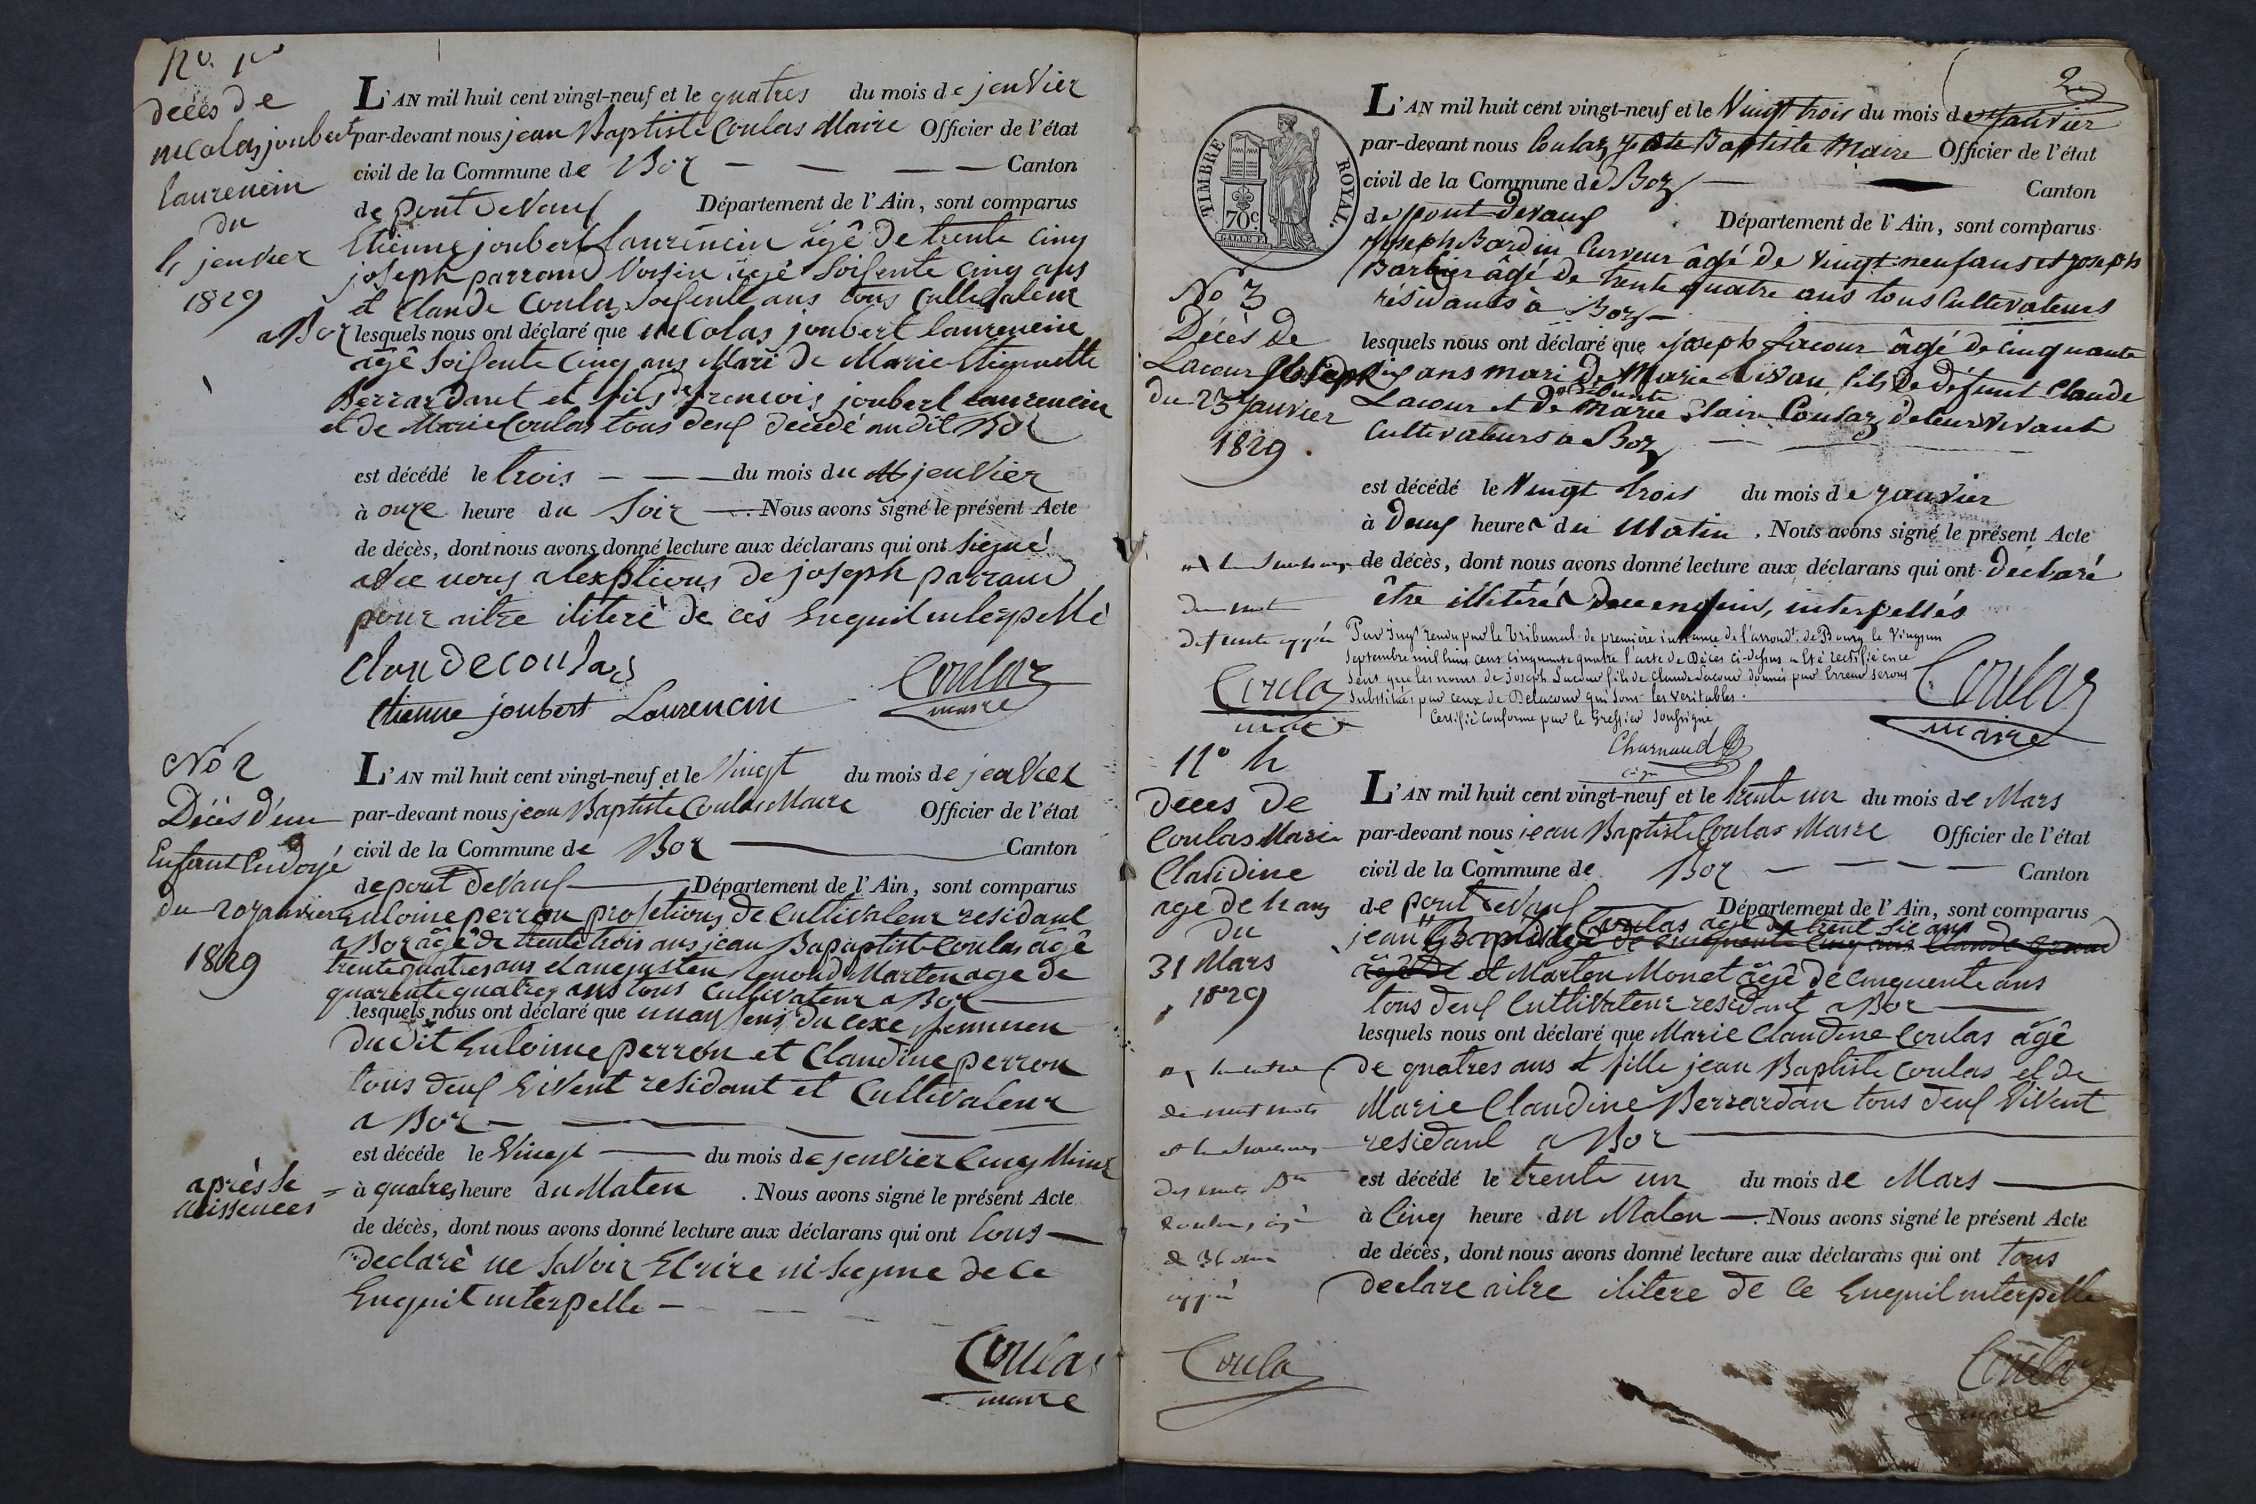 No. 1er
décès de
nicolas joubert
laurencin
du
4 jenvier
1829
L'AN mil huit cent vingt-neuf et le quatres du mois de jenvier
par-devant nous jean Baptiste Coulas Maire Officier de l'état
civil de la Commune de Boz — — — Canton
de pont de vaux Département de l'Ain, sont comparus
Etienne joubert laurencin âgê de trente cinq
joseph parraud voisin âgê soisente cinq ans
et Claude Coulas soisente ans tous Cultivateur
a Boz lesquels nous ont déclaré que nicolas joubert laurencin
âgê soisente cinq ans Mari de Marie Etiennette
Berrardant et fils de francois joubert laurencin
et de Marie Coulas tous deux décédé audit Boz
est décédé le trois — — du mois du jenvier
à onze heure du soir — . Nous avons signé le présent Acte
de décès, dont nous avons donné lecture aux déclarans qui ont signé
avec nous alexptions de joseph parraud
pour aitre ilitere de cis Enquil interpellè
Claude coulas
Etienne joubert Laurencin Coulaz
maire
No 2
Décès d'un
Enfant Endoyé
du 20 janvier
1829
L'AN mil huit cent vingt-neuf et le vingt du mois de jenvier
par-devant nous jean Baptiste Coulas Maire Officier de l'état
civil de la Commune de Boz — Canton
de pont de vaux — Département de l'Ain, sont comparus
Entoine perron profetions de Cultivateur residant
a Boz âgê de trente trois ans jean Bapaptiste Coulas âgê
trente quatres ans et augusten Monod Marton age de
quarente quatres ans tous Cultivateur a Boz —
lesquels nous ont déclaré que unanfens du cexe femenen
du dit Entoinne perron et Claudine perron
tous deux vivent residant et Cultivateur
a Boz — — — — —
est décéde le vingt — du mois de jenvier Cinq Minuz
après sa
naissences = à quatres heure du Maten . Nous avons signé le présent Acte
de décès, dont nous avons donné lecture aux déclarans qui ont tous —
declarè ne savoir Ecrire ni signe de ce
Enquit interpelle —
Coulas
maire
2
TIMBRE ROYAL.
70c
L'AN mil huit cent vingt-neuf et le vingt trois du mois de janvier
par-devant nous Coulaz jean Baptiste Maire Officier de l'état
civil de la Commune de Boz — Canton
de pont-devaux Département de l'Ain, sont comparus
joseph Bardin âgé de vingt-neuf ans et joseph
Barbier âgé de trente quatre ans tous Cultivateurs
résidants à Boz —
No 3
Décès de
Lacour joseph
du 23 janvier
1829.
lesquels nous ont déclaré que joseph Lacour âgé de cinquante
ans mari de Marie fils de défunt Claude
défunte
Lacour et de Marie Claire Coulaz de leur vivant
Cultivateurs a Boz —
est décédé le vingt trois du mois de janvier
à deux heures du Matin . Nous avons signé le présent Acte
de décès, dont nous avons donné lecture aux déclarans qui ont déclaré
être illitérés de ce enquis, interpellés
du mot
defunte app.
Coula
maire
Par jugt rendu par le Tribunal de première instance de l'arrondt de Bourg le vingt un
Septembre mil huit cent cinquante quatre l'acte de Décès ci-dessus a été rectifié en ce
sens que les noms de Joseph Lacour fils de Claude Lacour donnés par Erreur seront
substitués par ceux de Delacour qui sont les véritables.
Certifié conforme par le Greffier soussigné
Charnaud
Coulaz
maire
No 4
deces de
Coulas Marie
Claudine
age de 4 ans
du
31 Mars
1829
L'AN mil huit cent vingt-neuf et le trente un du mois de Mars
par-devant nous jean Baptiste Coulas Maire Officier de l'état
civil de la Commune de Boz — — — — Canton
de pont devaux Département de l'Ain, sont comparus
Coulas age de trent sie ans
jean Baptiste âgé de cinquente cinq ans Claude
âgé de et Marten Monet âgê de cinquente ans
tous deux Cultivateur residant a Boz —
lesquels nous ont déclaré que Marie Claudine Coulas âgê
de quatres ans et fille jean Baptiste Coulas et de
Marie Claudine Berrardan tous deux vivent
residant a Boz —
est décédé le trente un du mois de Mars —
à Cinq heure du Maten — . Nous avons signé le présent Acte
de décès, dont nous avons donné lecture aux déclarans qui ont tous
declare aitre ilitere de ce Enquil interpelle
de neuf mots
de 36 ans
Coula
Coulaz
maire